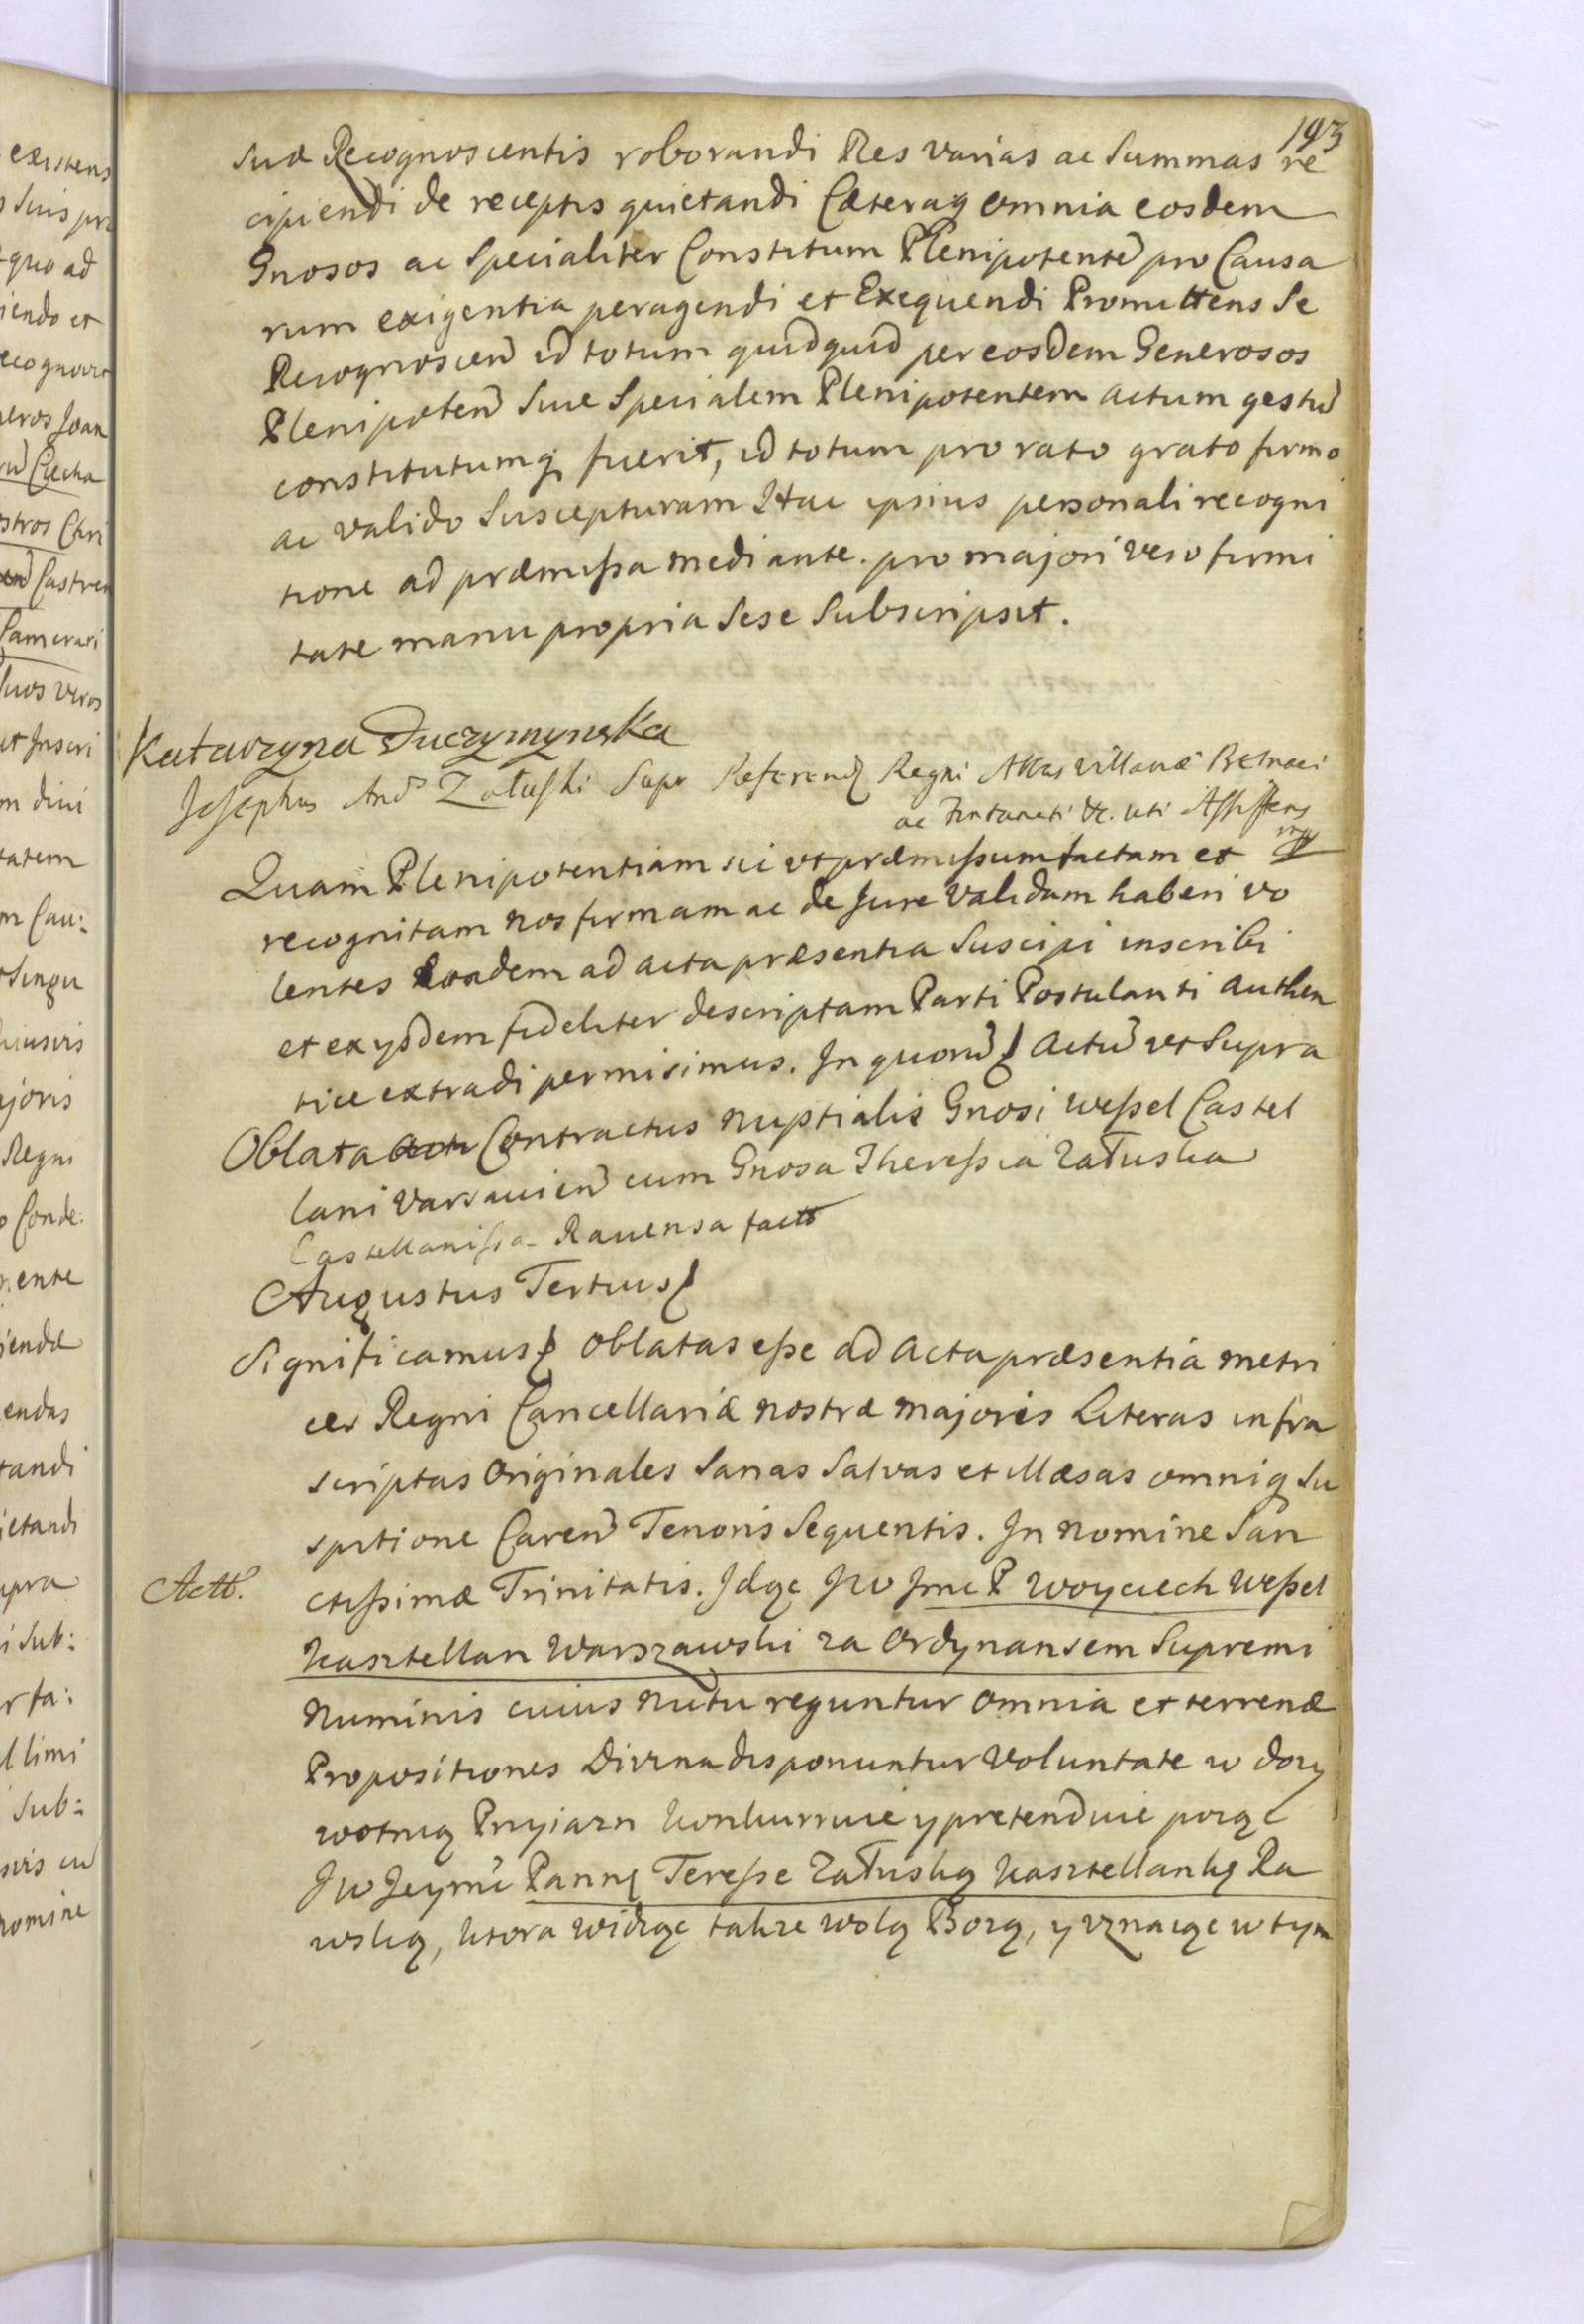 193
suæ Recognoscentis roborandi Res varias ac Summas re
cipiendi de receptis quietandi Cæteraq omnia eosdem
Gnosos ac Specialiter Constitutum Plenipotente pro Causa
rum exigentia peragendi et Exequendi Promittens Se
Recognoscen id totum quidquid per eosdem Generosos
Plenipoten Sive Specialem Plenipotentem actum gestu
constitutumq fuerit, id totum pro rato grato firmo
ac valido Suscepturam Hac ipsius personali recogni
tione ad præmissa mediante. pro majori vero firmi
tate manu propria Sese Subscripsit.
Katarzyna Duczymynska
Josephus And Załuski Supr Referend Regni Abbas Villanæ Betnaei
ac Fontaneti &c. uti Assistens
mp
Quam Plenipotentiam sic ut præmissum factam et
recognitam nos firmam ac de Jure validam haberi vo
lentes Eandem ad acta præsentia Suscipi inscribi
et ex ysdem fideliter descriptam Parti Postulanti authen
tice extradi permisimus. In quoru Actu ut Supra
Oblata Contractus nuptialis Gnosi Wessel Castel
lani Varsavien cum Gnosa Theressia Załuska
Castellanissa Ravensa factt
Augustus Tertius
Significamus oblatas esse ad acta præsentia metri
ces Regni Cancellariæ nostræ majoris Literas infra
scriptas Originales Sanas Salvas et illæsas omniq su
spitione Caren Tenoris Sequentis. In nomine San
Actt.
ctissimæ Trinitatis. Idąc JW Jmc P Woyciech Wessel
Kasztellan Warszawski za Ordynansem Supremi
Numinis cuius nutu reguntur omnia et terrenæ
Propositiones Divina disponuntur Voluntate w dozy
wotnią Przyiazn konkurruie y pretenduie poiąc
JW Jeymc Pannę Teresse Załuską Kasztellankę Ra
wską, ktora widząc takze wolą Bozą, y vznaiąc w tym